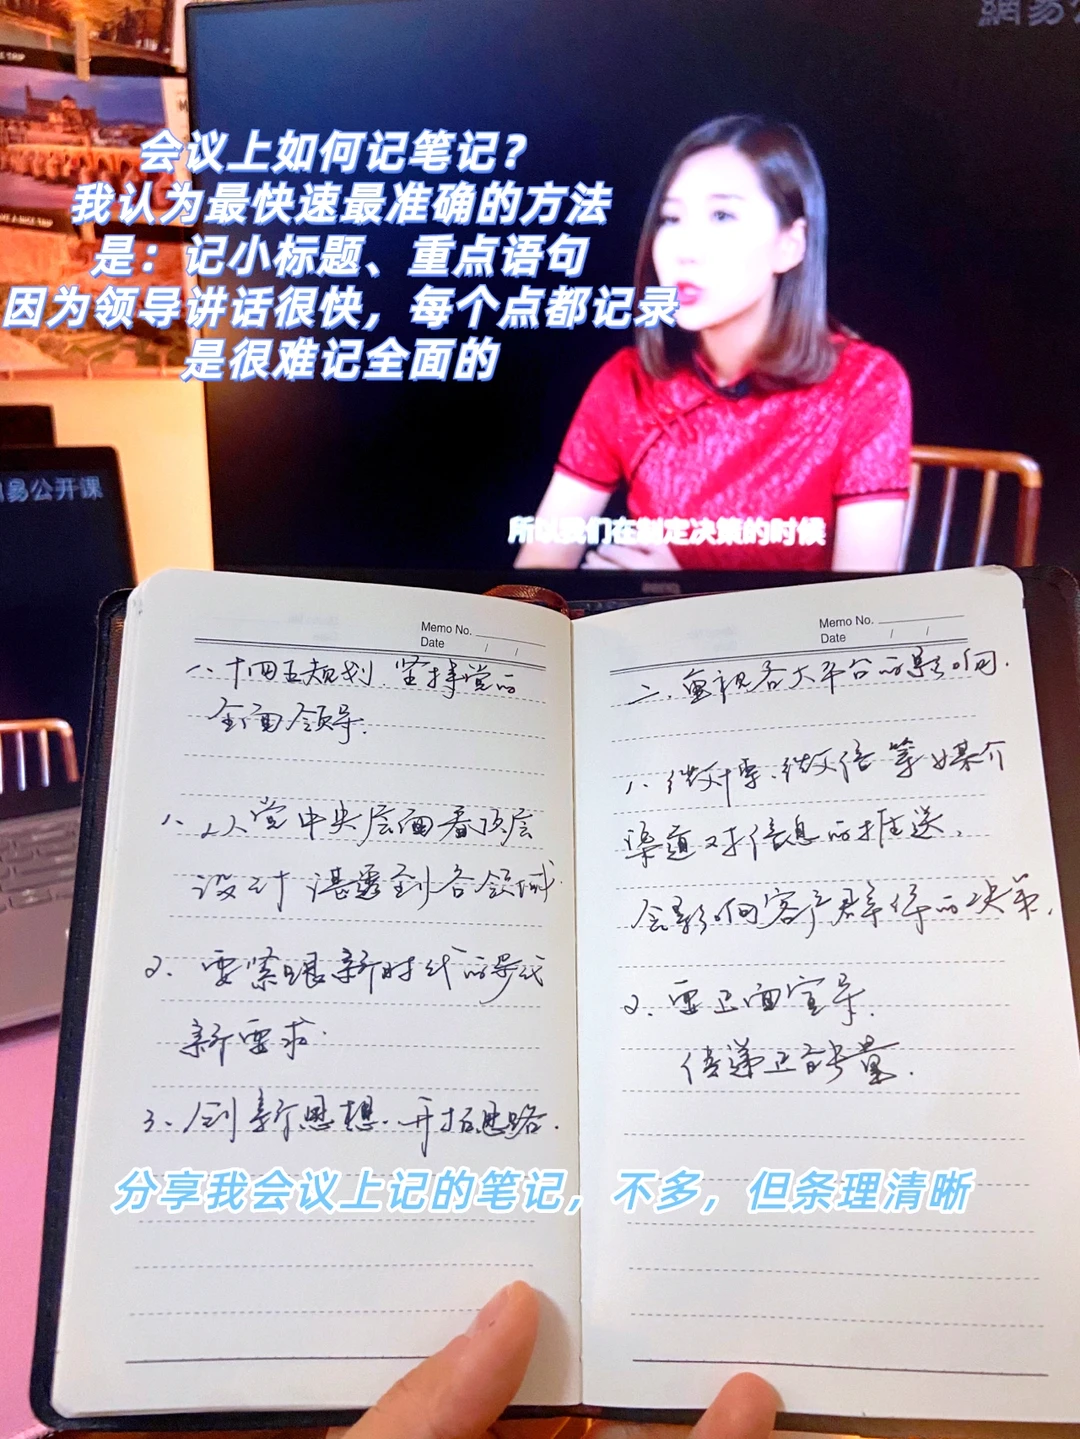 網易公
TRIP
E A NICE TRIP
会议上如何记笔记？
我认为最快速最准确的方法
是：记小标题、重点语句
因为领导讲话很快，每个点都记录
是很难记全面的
易公开课
所以我们在制定决策的时候
Memo No.
Date / /
一、十四五规划，坚持党的
全面领导.
1、从党中央层面看顶层
设计 湛透到各领域.
2. 要紧跟新时代的导线
新要求.
3、创新思想.开拓思路.
Memo No.
Date / /
二.重视各大平台的影响.
1、微博、微信等媒介
渠道对信息的推送.
会影响客户群体的决策.
2.要正面宣导.
传递正能量.
分享我会议上记的笔记，不多，但条理清晰